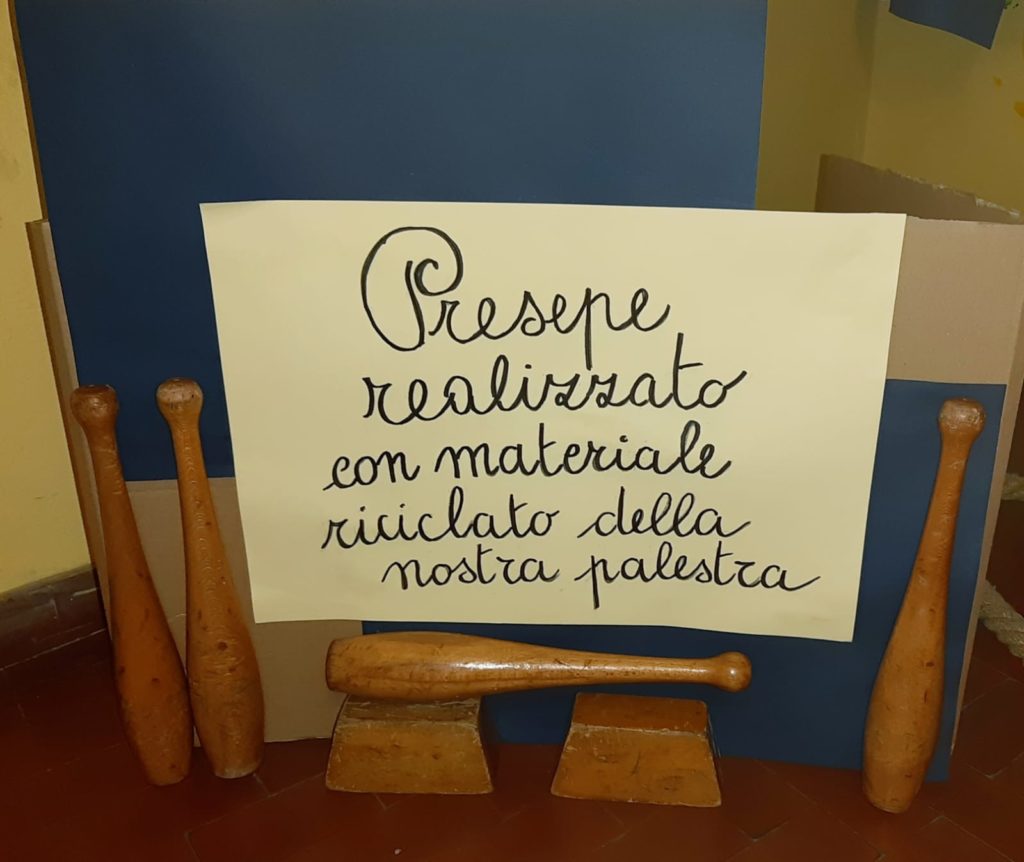 Presepe
realizzato
con materiale
riciclato della
nostra palestra